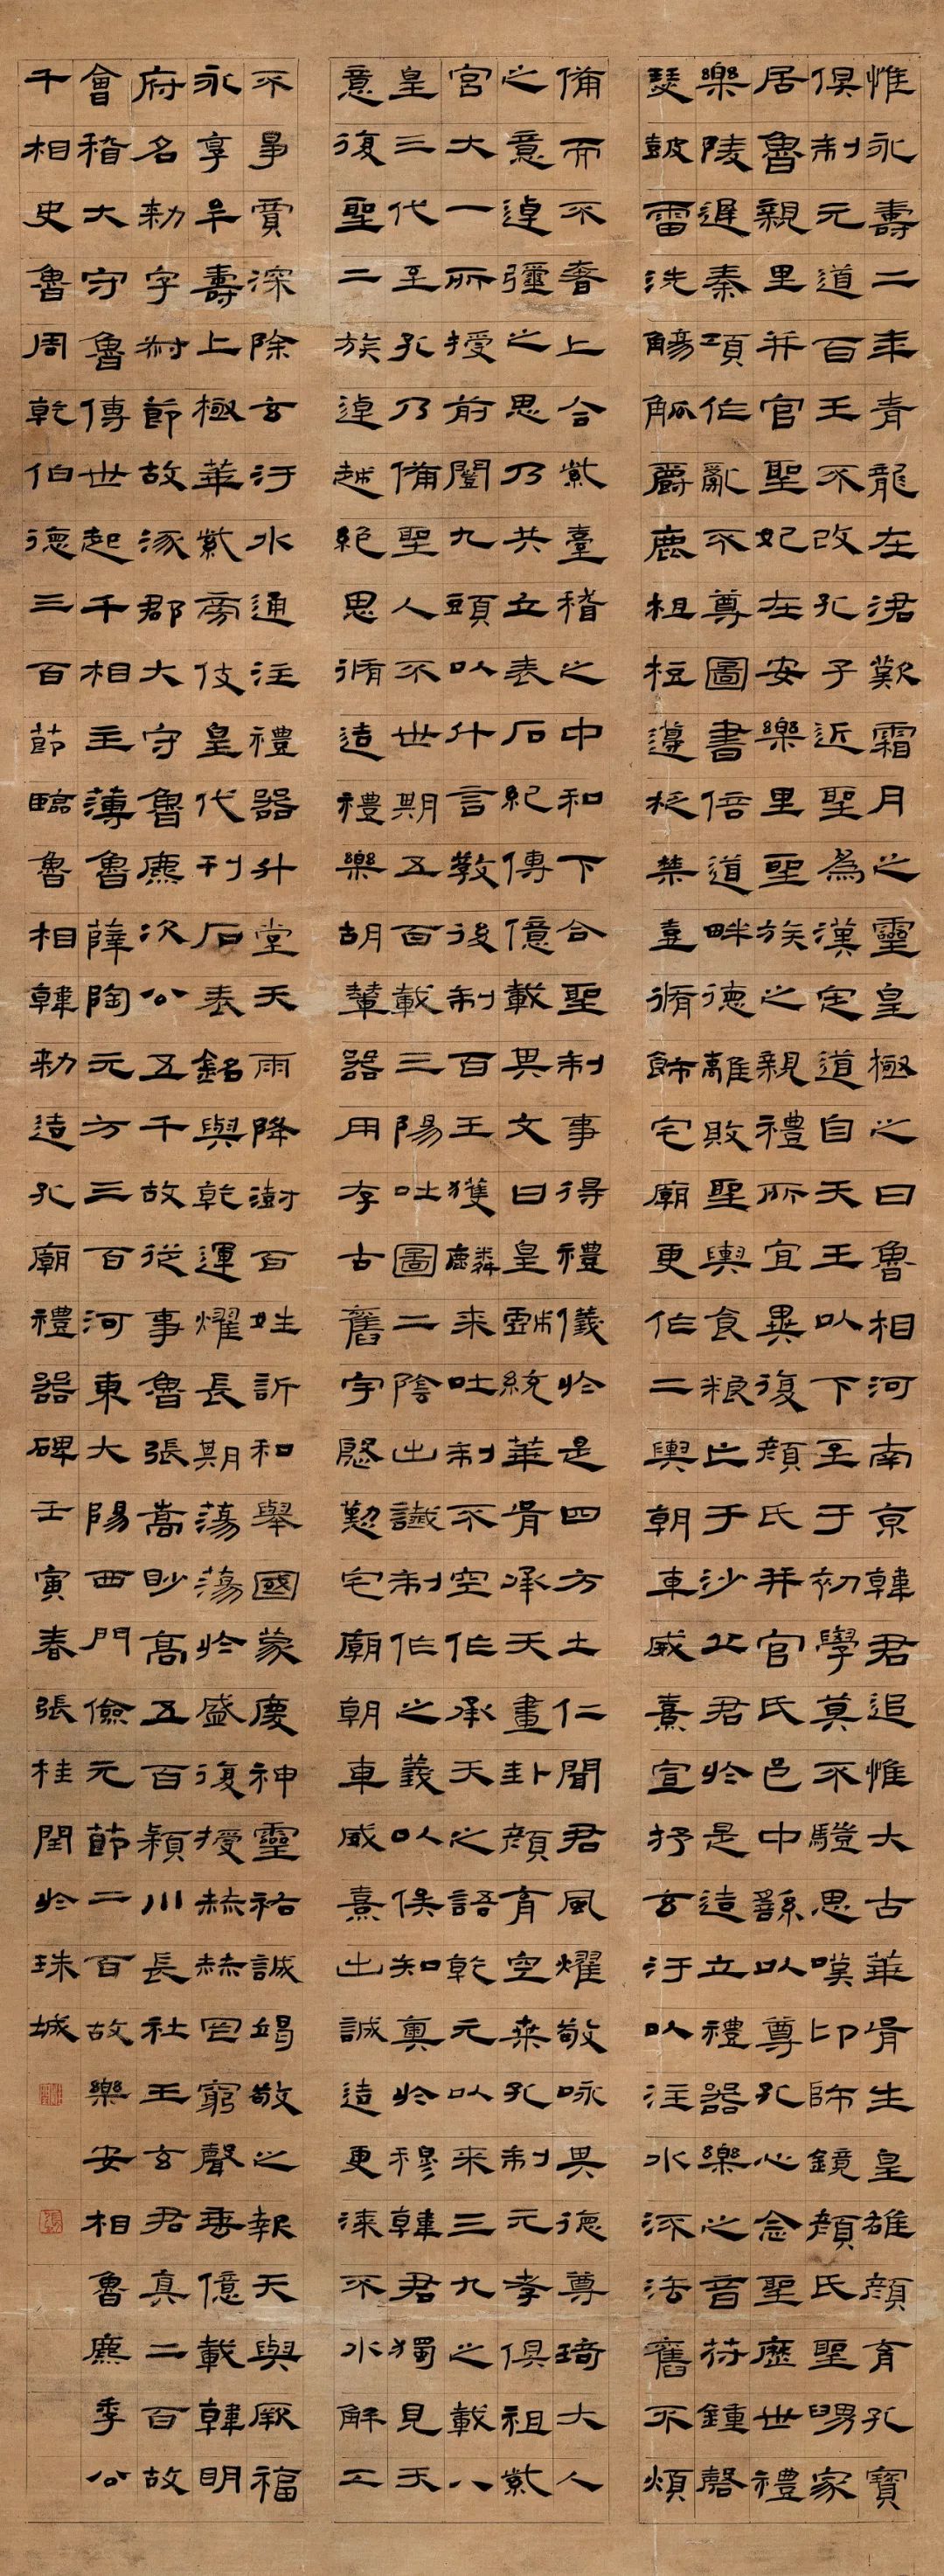 惟永壽二年青龍在涒歎霜月之靈皇極之日魯相河南京韓君追惟大古華胥生皇雄顏育孔寶
俱制元道百王不改孔子近聖為漢定道自天王以下至于初學莫不驥思嘆卬師鏡顏氏聖舅家
居魯親里并官聖妃在安樂里聖族之親禮所宜異復顏氏并官氏邑中繇以尊孔心念聖歷世禮
樂陵遲秦項作亂不尊圖書倍道畔德離敗聖輿食粮亡于沙丘君於是造立禮器樂之音苻鍾磬
瑟鼓雷洗觴觚爵鹿柤梪籩柉禁壺脩飾宅廟更作二輿朝車威熹宣抒玄汙以注水流法舊不煩
備而不奢上合紫臺稽之中和下合聖制事得禮儀於是四方土仁聞君風燿敬咏其德尊琦大人
之意逴彊之思乃共立表石紀傳億載其文曰皇戲統華胥承天畫卦顏育空桑孔制元孝俱祖紫
宮大一所授前闓九頭以什言教後制百王獲麟來吐制不空作承天之語乾元以來三九之載八
皇三代至孔乃備聖人不世期五百載三陽吐圖二陰出讖制作之義以俟知奧於穆韓君獨見天
意復聖二族逴越絕思脩造禮樂胡輦器用存古舊宇慇懃宅廟朝車威熹出誠造更漆不水解工
不爭賈深除玄汙水通注禮器升堂天雨降澍百姓訢和舉國蒙慶神靈祐誠竭敬之報天與厥福
永享牟壽上極華紫旁伎皇代刊石表銘與乾運燿長期蕩蕩於盛復授赫赫罔窮聲垂億載韓明
府名勑字叔節故涿郡大守魯麃次公五千故從事魯張嵩眇高五百潁川長社王玄君真二百故
會稽大守魯傅世起千相主薄魯薛陶元方三百河東大陽西門儉元節二百故樂安相魯麃季公
千相史魯周乾伯德三百節臨魯相韓勑造孔廟禮器碑壬寅春張桂閏於珠城